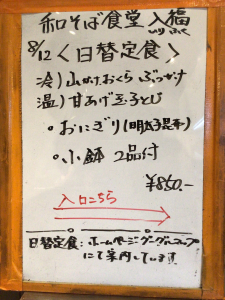 和そば食堂 入福
8/12 〈日替定食〉
冷) 山かけおくら ぶっかけ
温) 甘あげ玉子とじ
・おにぎり(明太子昆布)
・小鉢 2品付
¥850.-
入口こちら
日替定食:ホームページ・グーグルマップ
にて案内しています